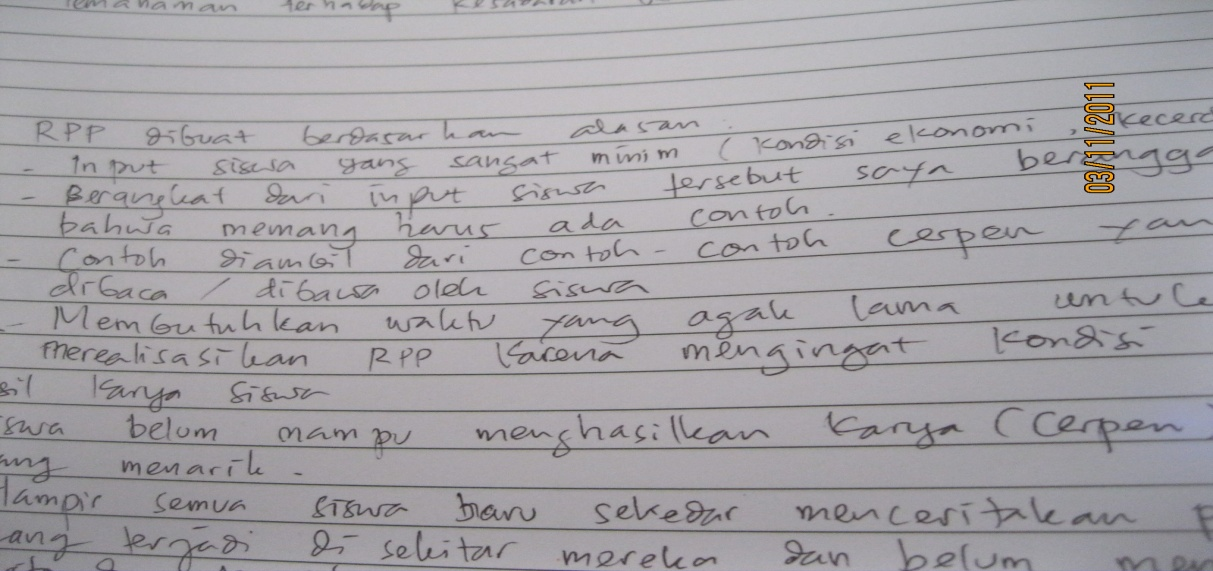 pemahaman terhadap
RPP dibuat berdasarkan alasan.
- Input siswa yang sangat minim (Kondisi ekonomi, kecerd
- Berangkat dari input siswa tersebut saya berangga
bahwa memang harus ada contoh.
- Contoh diambil dari contoh-contoh cerpen yan
dibaca / dibawa oleh siswa
- Membutuhkan waktu yang agak lama untuk
merealisasikan RPP karena mengingat kondisi
sil karya siswa
swa belum mampu menghasilkan karya (cerpen)
ang menarik.
lampir semua siswa baru sekedar menceritakan p
ang terjadi di sekitar mereka dan belum mem
03/11/2011